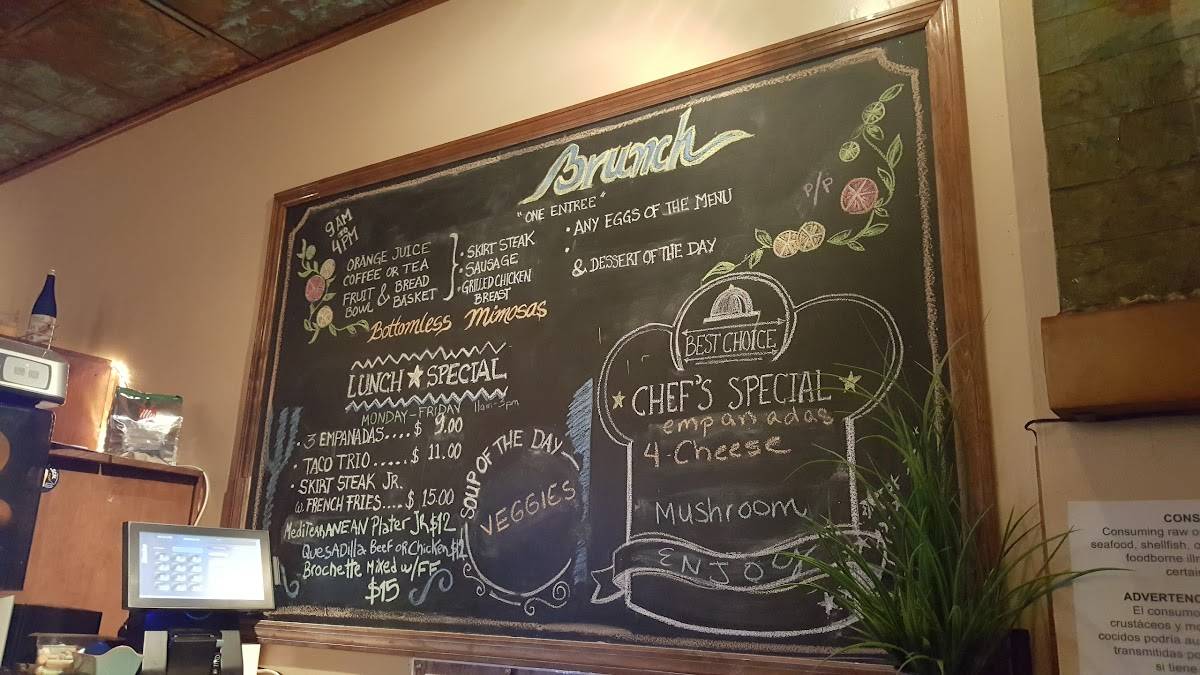 Brunch
"ONE ENTREE"
9AM
TO
4PM
ORANGE JUICE
COFFEE OR TEA
FRUIT BOWL & BREAD BASKET
• SKIRT STEAK
• SAUSAGE
• GRILLED CHICKEN
BREAST
• ANY EGGS OF THE MENU
•
& DESSERT OF THE DAY
P/P
Bottomless Mimosas
LUNCH SPECIAL
MONDAY-FRIDAY 11am-3pm
• 3 EMPANADAS.... $ 9.00
• TACO TRIO..... $ 11.00
• SKIRT STEAK JR.
w. FRENCH FRIES... $ 15.00
MediterrANEAN Plater Jr $12
QuesADilla Beef OR Chicken $12
Brochette Mixed w/FF
$15
SOUP OF THE DAY
VEGGIES
BEST CHOICE
CHEF'S SPECIAL
empanadas
4-Cheese
Mushroom
ENJOY
CONS
Consuming raw o
seafood, shellfish, o
foodborne illn
certai
ADVERTENC
El consumo
crustáceos y mo
cocidos podría au
transmitidas po
si tiene